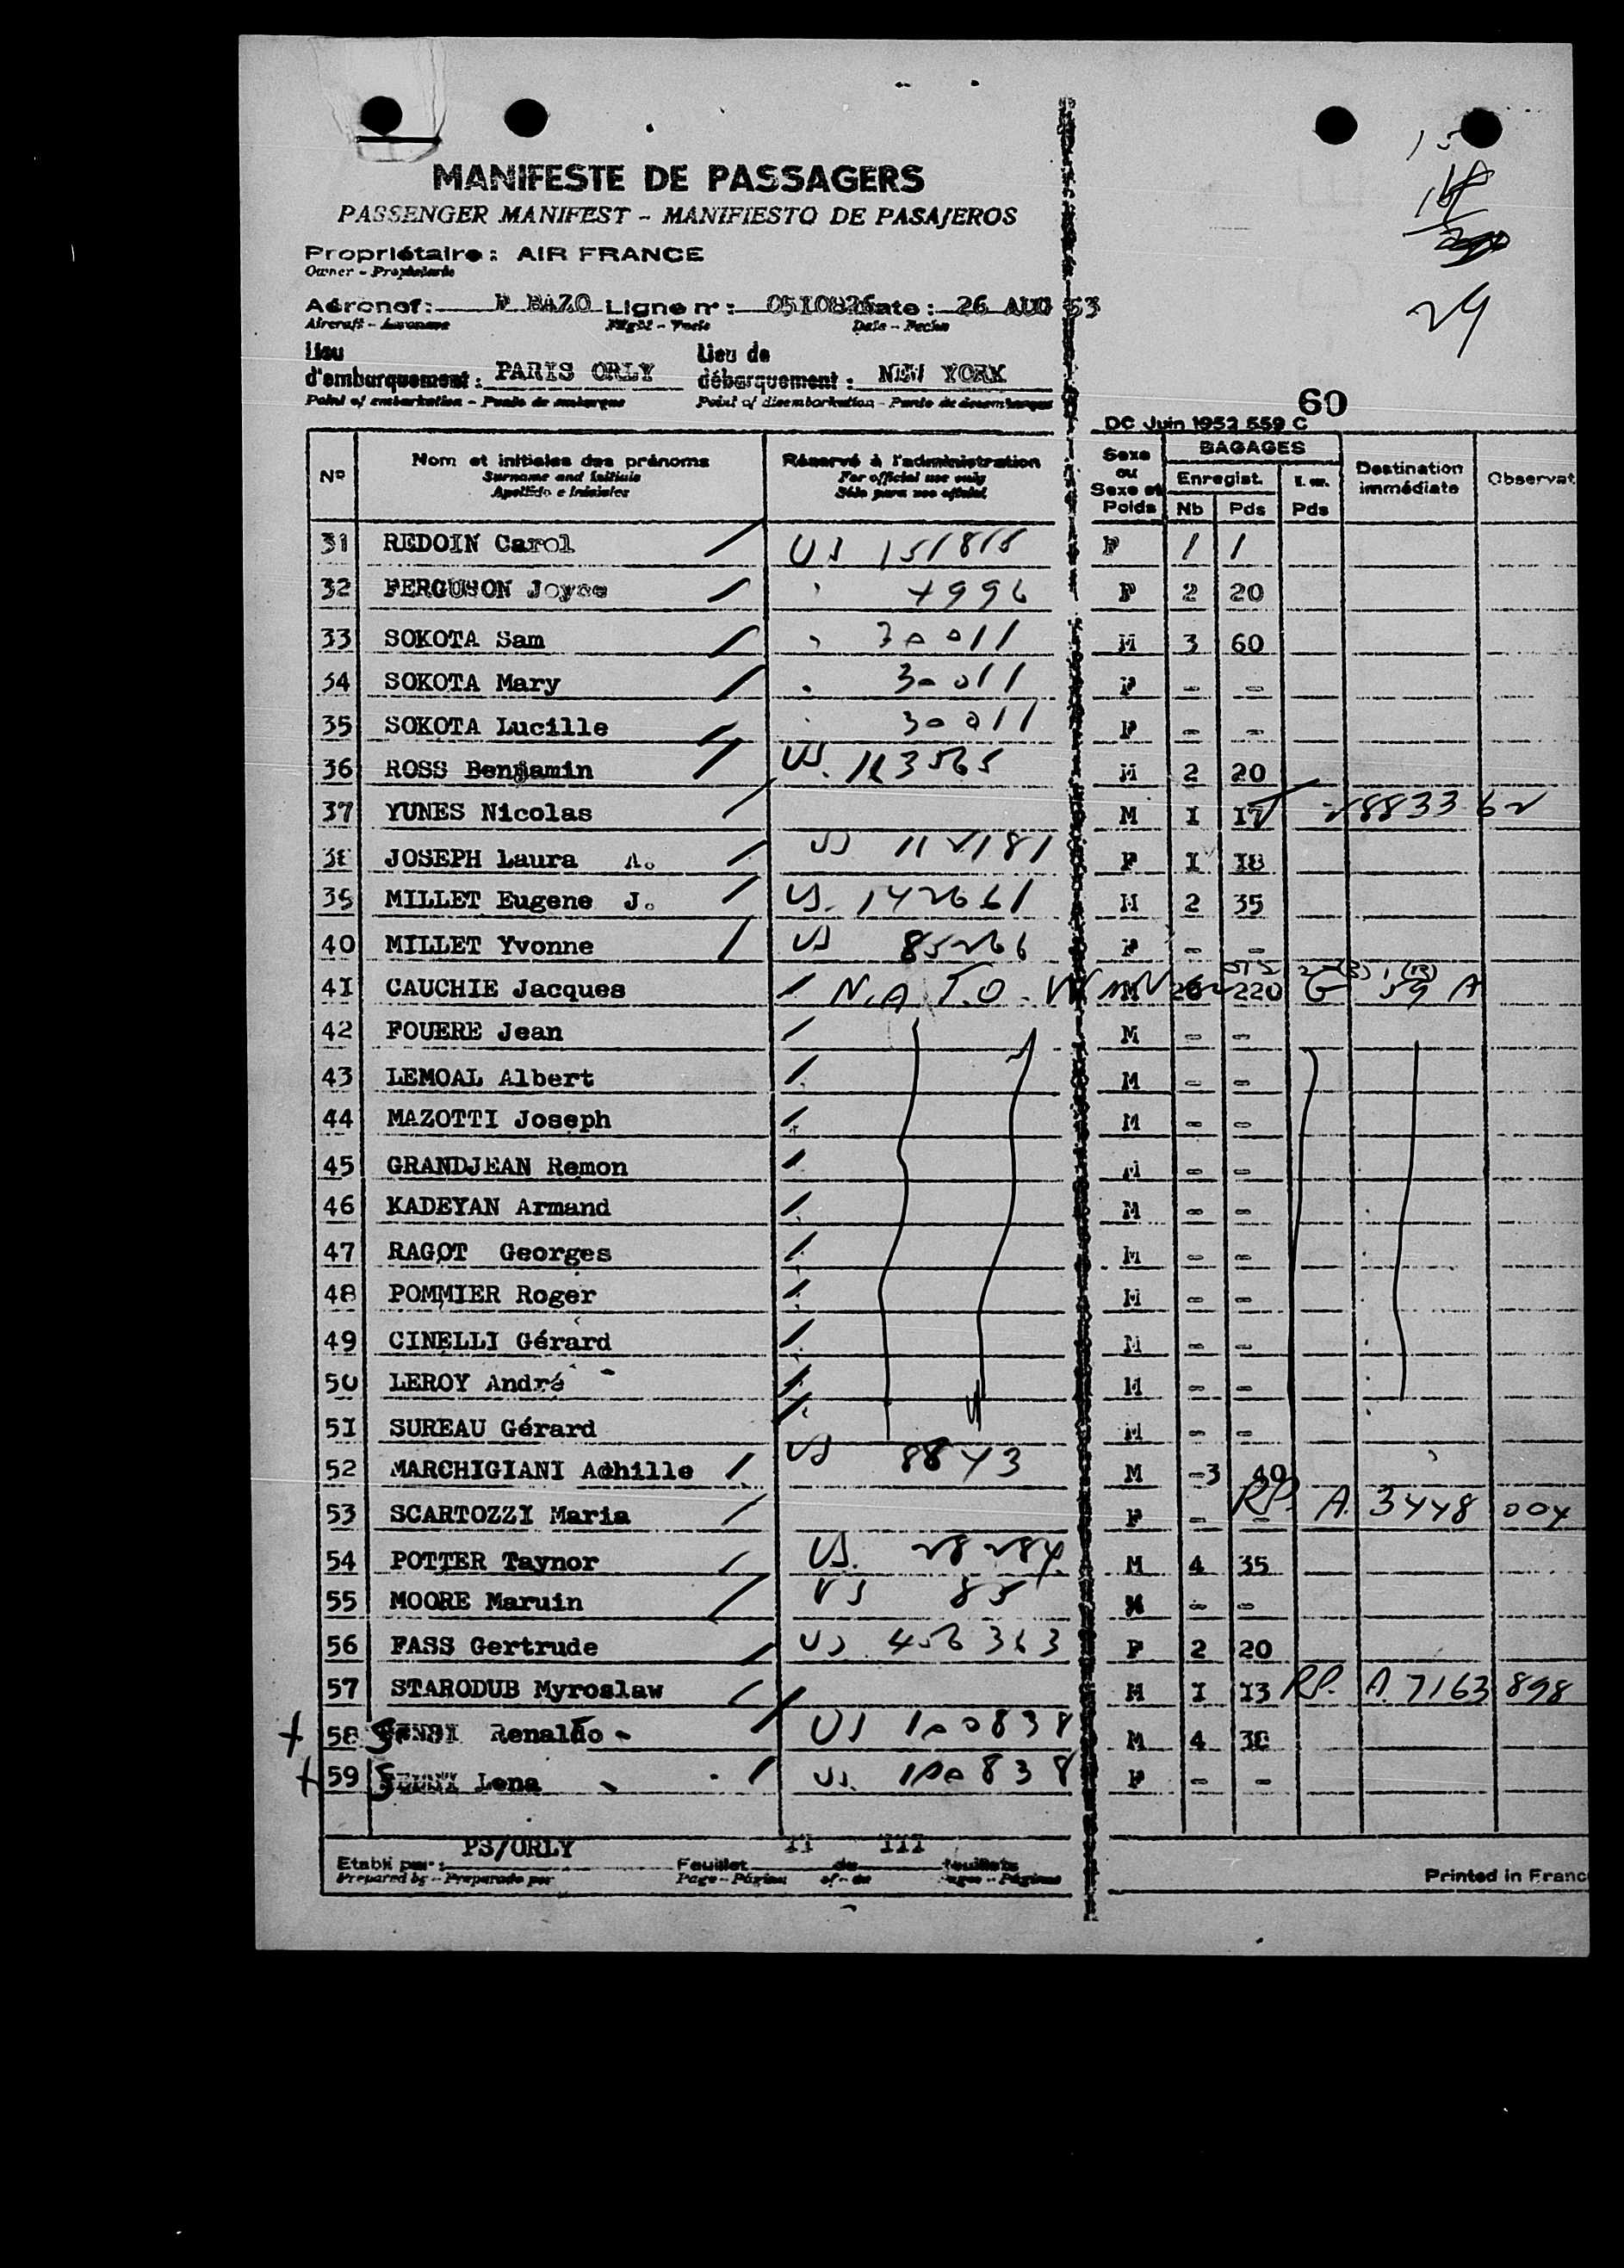 MANIFESTE DE PASSAGERS
PASSENGER MANIFEST - MANIFIESTO DE PASAJEROS
Propriétaire : AIR FRANCE
Owner - Propietario
Aéronef : F BAZO Ligne n° : 0510826 Date : 26 AUG 53
Aircraft - Aeronave Flight - Vuelo Date - Fecha
Lieu d'embarquement : PARIS ORLY Lieu de débarquement : NEW YORK
Point of embarkation - Punto de embarque Point of disembarkation - Punto de desembarque
29
60
DC Juin 1952 559 C
N° Nom et initiales des prénoms Réservé à l'administration Sexe ou Sexe et Poids BAGAGES Destination immédiate Observat
Surname and initials For official use only Enregist.
Apellido e iniciales Sólo para uso oficial Nb Pds Pds
31 REDOIN Carol US 151815 F 1 1
32 FERGUSON Joyce 4996 F 2 20
33 SOKOTA Sam 30011 M 3 60
34 SOKOTA Mary 30011 F - -
35 SOKOTA Lucille 30011 F - -
36 ROSS Benjamin US. 113565 M 2 20
37 YUNES Nicolas M I I7 883362
38 JOSEPH Laura A. US 112181 F I I8
39 MILLET Eugene J. US. 142661 M 2 35
40 MILLET Yvonne US 85266 F - -
4I CAUCHIE Jacques N.A.T.O. M 26 220
42 FOUERE Jean M - -
43 LEMOAL Albert M - -
44 MAZOTTI Joseph M - -
45 GRANDJEAN Remon M - -
46 KADEYAN Armand M - -
47 RAGOT Georges M - -
48 POMMIER Roger M - -
49 CINELLI Gérard M - -
50 LEROY André M - -
5I SUREAU Gérard M - -
52 MARCHIGIANI Adhille US 8843 M -3 40
53 SCARTOZZI Maria F - - RP. A. 3448 004
54 POTTER Taynor US. 28284 M 4 35
55 MOORE Maruin US 85 M - -
56 FASS Gertrude US 456363 F 2 20
57 STARODUB Myroslaw M I I3 RP. A. 7163 898
58 Renaldo US 100838 M 4 38
59 Lena US. 100838 F - -
Etabli par : PS/ORLY Feuillet II de III feuillets
Prepared by - Preparado por Page - Página of - de Pages - Páginas
Printed in Franc